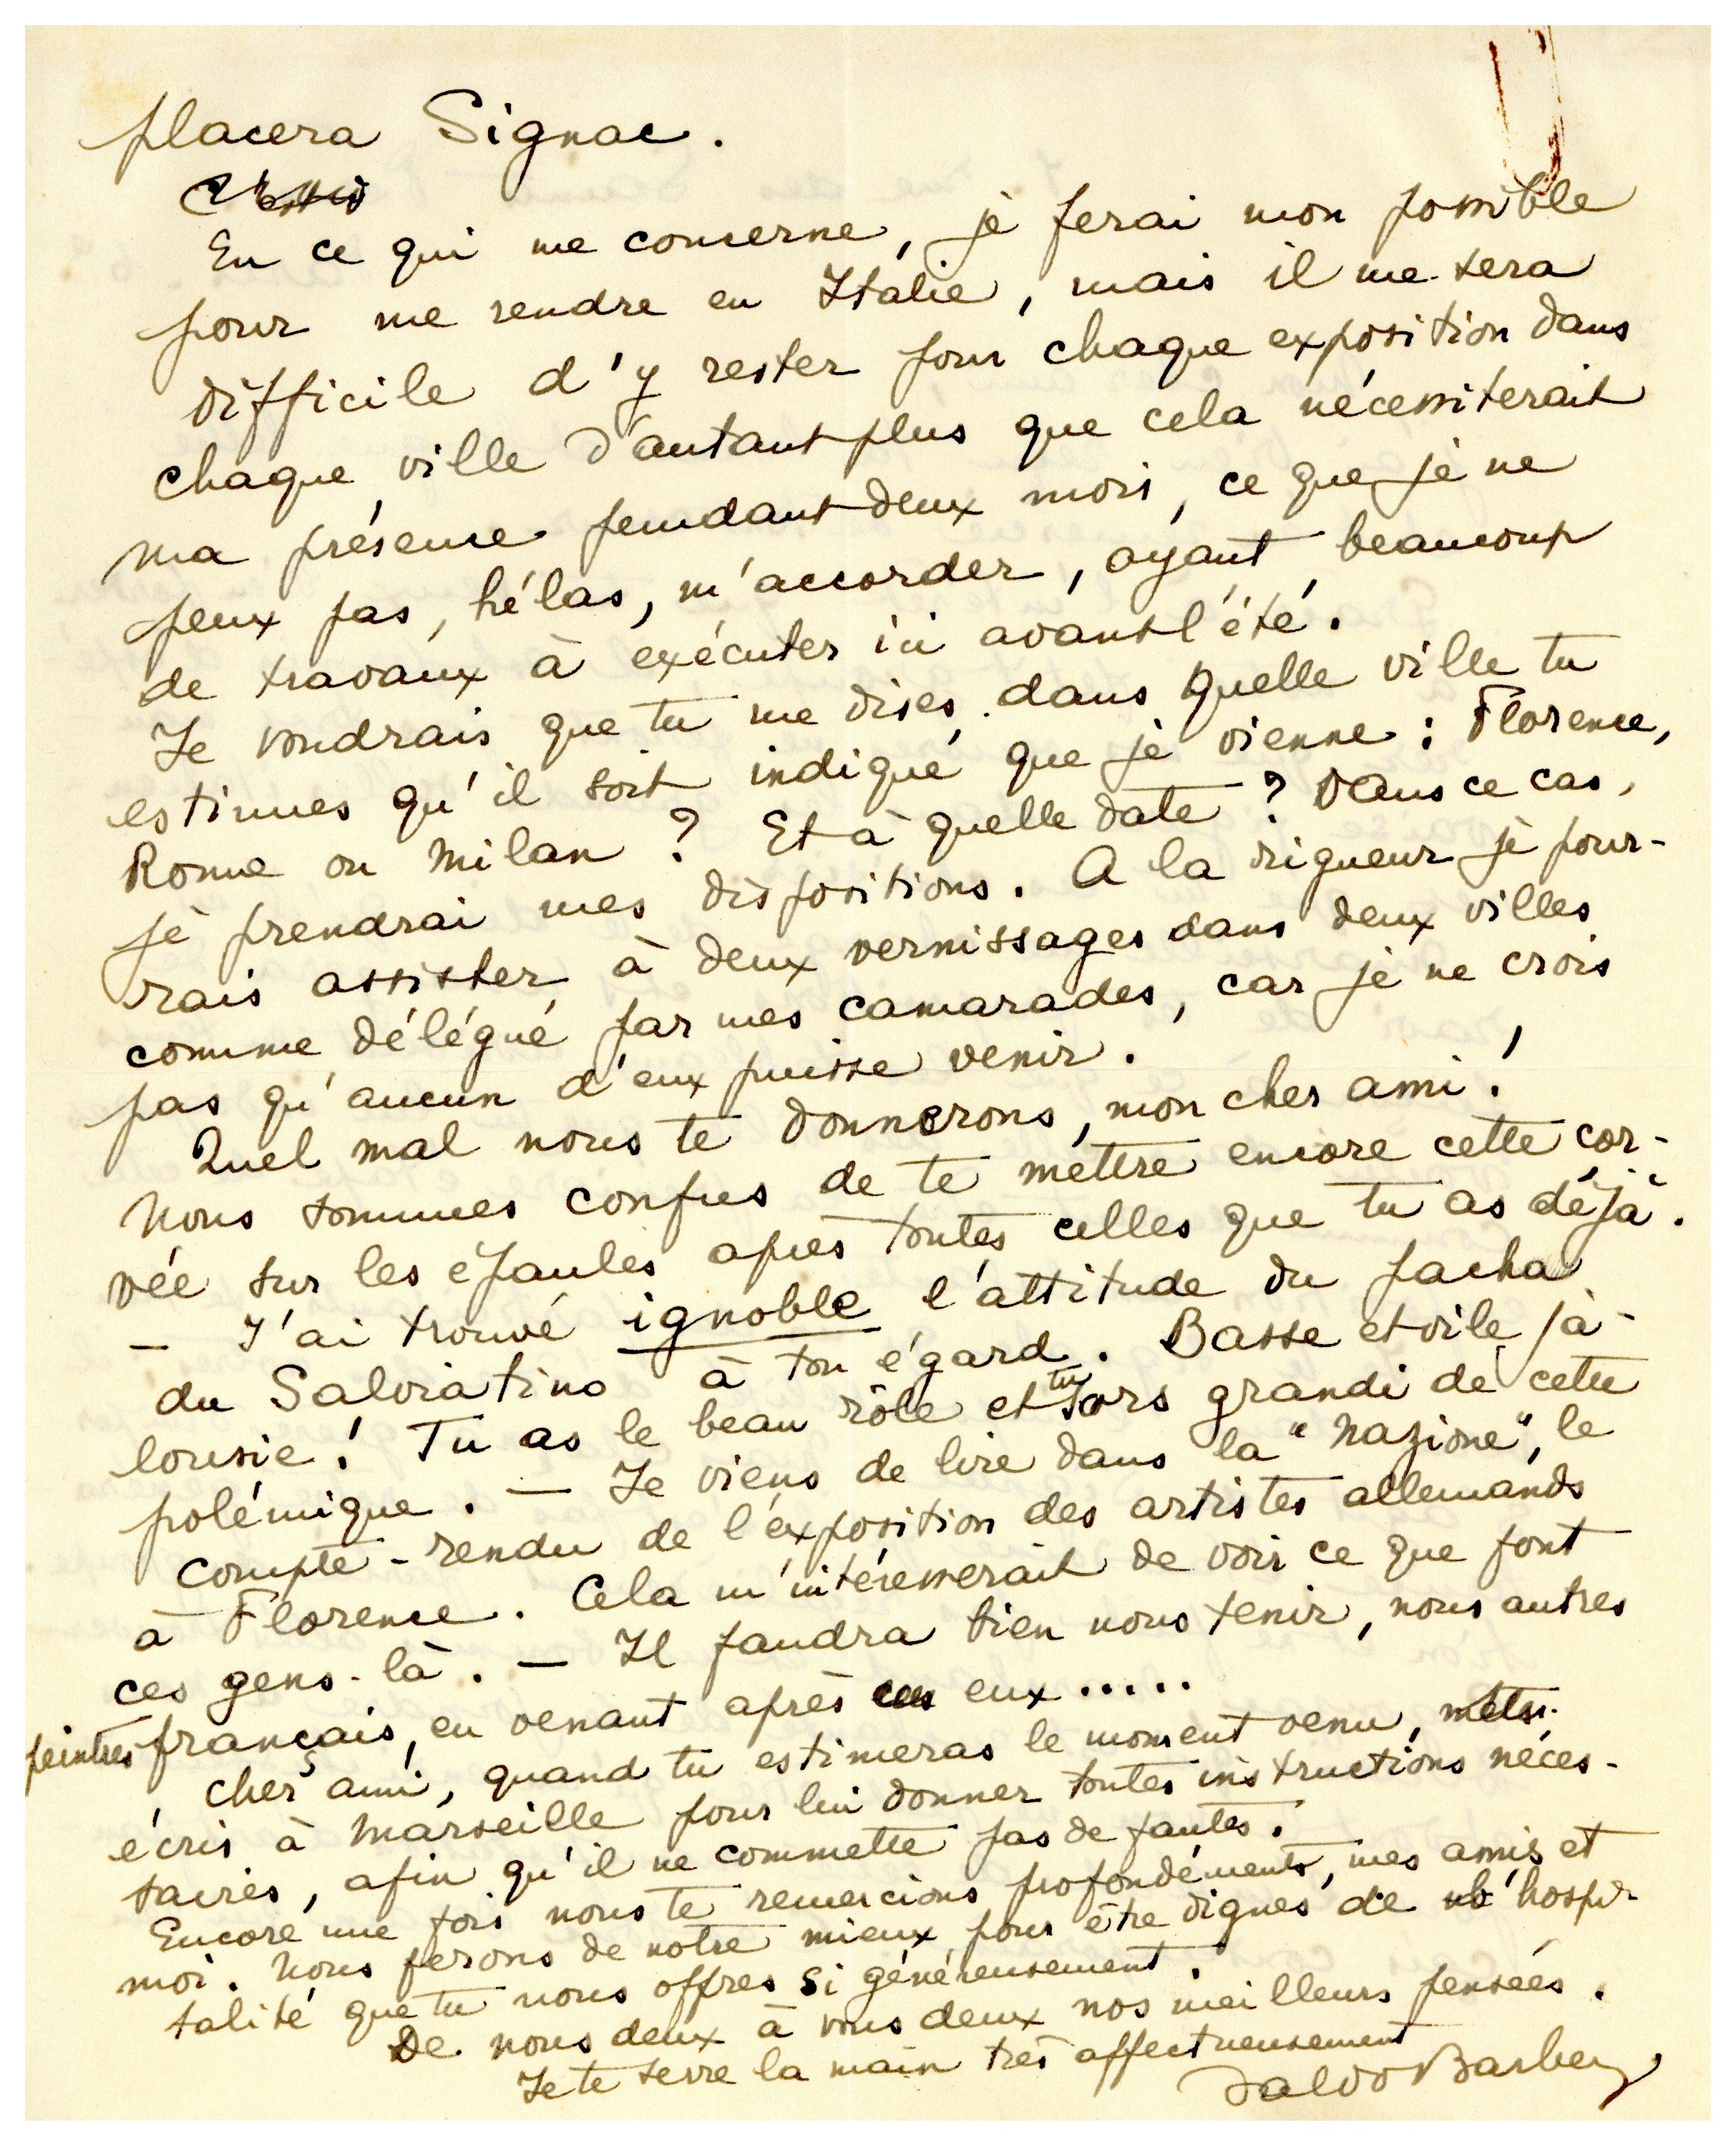 placera Signac.
En ce qui me concerne, je ferai mon possible
pour me rendre en Italie, mais il me sera
difficile d'y rester pour chaque exposition dans
chaque ville d'autant plus que cela nécessiterait
ma présence pendant deux mois, ce que je ne
peux pas, hélas, m'accorder, ayant beaucoup
de travaux à exécuter ici avant l'été.
Je voudrais que tu me dises dans quelle ville tu
estimes qu'il soit indiqué que je vienne : Florence,
Rome ou Milan ? Et à quelle date ? Dans ce cas,
je prendrai mes dispositions. A la rigueur je pour-
rais assister à deux vernissages dans deux villes
comme délégué par mes camarades, car je ne crois
pas qu'aucun d'eux puisse venir.
Quel mal nous te donnerons, mon cher ami !
Nous sommes confus de te mettre encore cette cor-
vée sur les épaules après toutes celles que tu as déjà.
— J'ai trouvé ignoble l'attitude du pacha
du Salviatino à ton égard. Basse et vile ja-
lousie ! Tu as le beau rôle et tu sors grandi de cette
polémique. — Je viens de lire dans la "Nazione", le
compte-rendu de l'exposition des artistes allemands
à Florence. Cela m'intéresserait de voir ce que font
ces gens-là. — Il faudra bien nous tenir, nous autres
peintres français, en venant après eux.....
Cher ami, quand tu estimeras le moment venu,
écris à Marseille pour lui donner toutes instructions néces-
saires, afin qu'il ne commette pas de fautes.
Encore une fois nous te remercions profondément, mes amis et
moi. Nous ferons de notre mieux pour être dignes de l'hospi-
talité que tu nous offres si généreusement.
De nous deux à vous deux nos meilleurs pensées.
Je te serre la main très affectueusement
Galdo Barbey